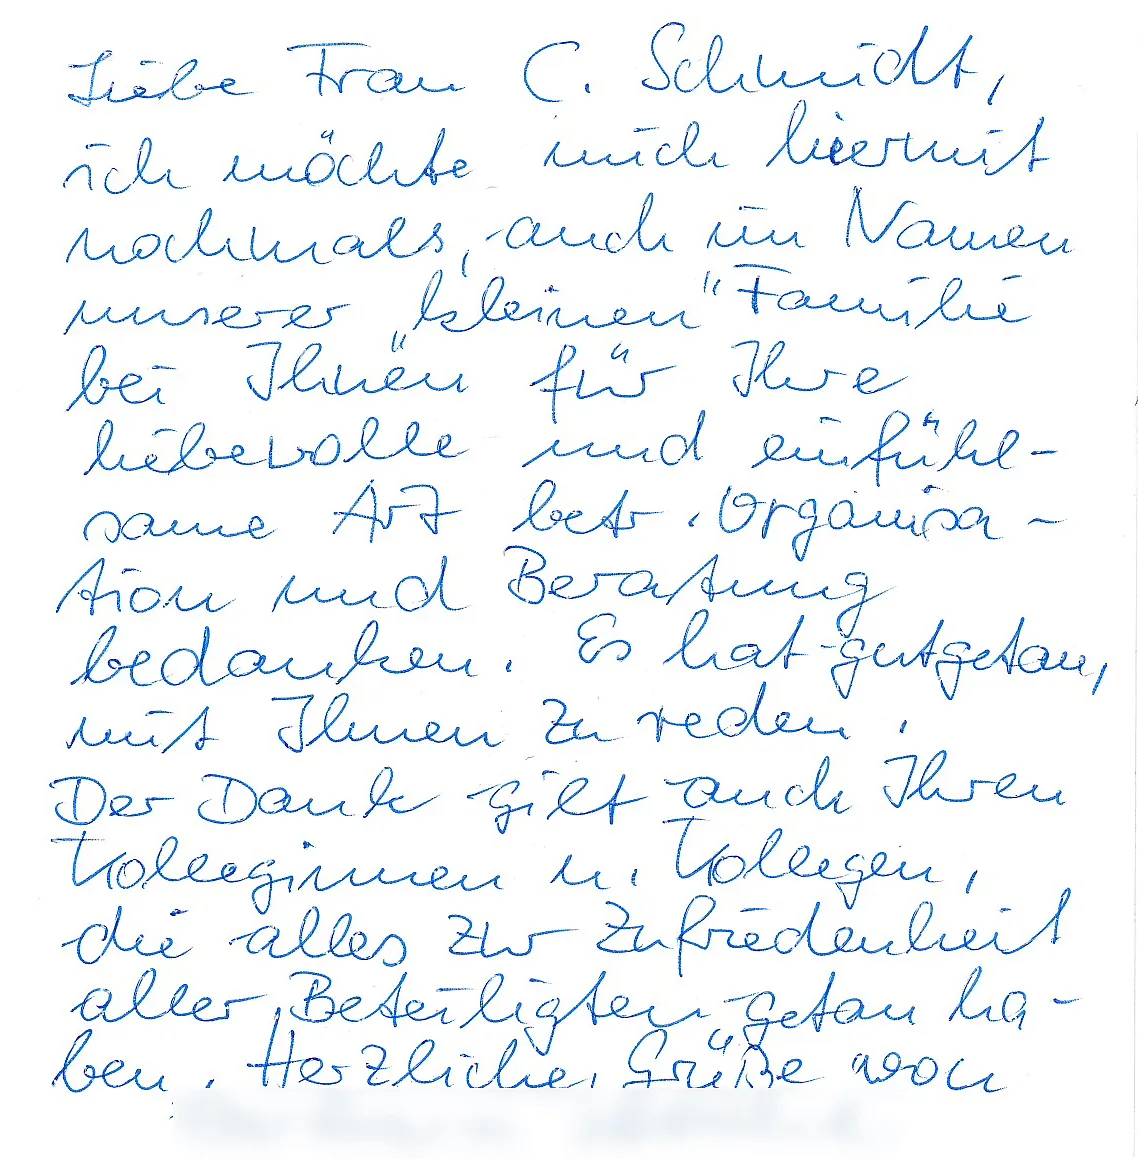 Liebe Frau C. Schmidt,
ich möchte mich hiermit
nochmals, auch im Namen
unserer „kleinen" Familie
bei Ihnen für Ihre
liebevolle und einfühl-
same Art betr. Organisa-
tion und Beratung
bedanken. Es hat gutgetan,
mit Ihnen zu reden.
Der Dank gilt auch Ihren
Kolleginnen u. Kollegen,
die alles zur Zufriedenheit
aller Beteiligten getan ha-
ben. Herzliche Grüße von